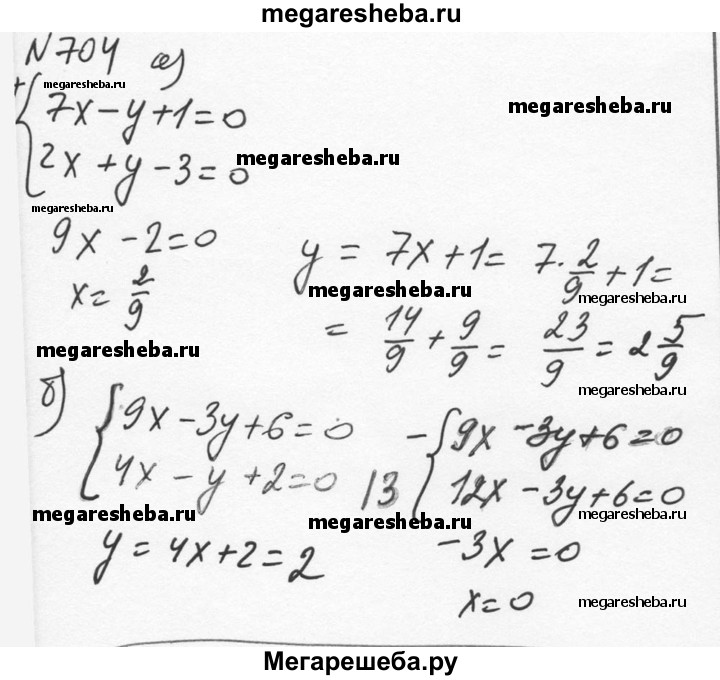 megaresheba.ru
N 704 а)
megaresheba.ru
+ { 7x - y + 1 = 0
megaresheba.ru
2x + y - 3 = 0
megaresheba.ru
megaresheba.ru
9x - 2 = 0
x = 2/9
y = 7x + 1 = 7 · 2/9 + 1 =
megaresheba.ru
megaresheba.ru
= 14/9 + 9/9 = 23/9 = 2 5/9
megaresheba.ru
megaresheba.ru
б) { 9x - 3y + 6 = 0
4x - y + 2 = 0 | 3
- { 9x - 3y + 6 = 0
12x - 3y + 6 = 0
megaresheba.ru
megaresheba.ru
megaresheba.ru
-3x = 0
x = 0
y = 4x + 2 = 2
megaresheba.ru
Мегарешеба.ру